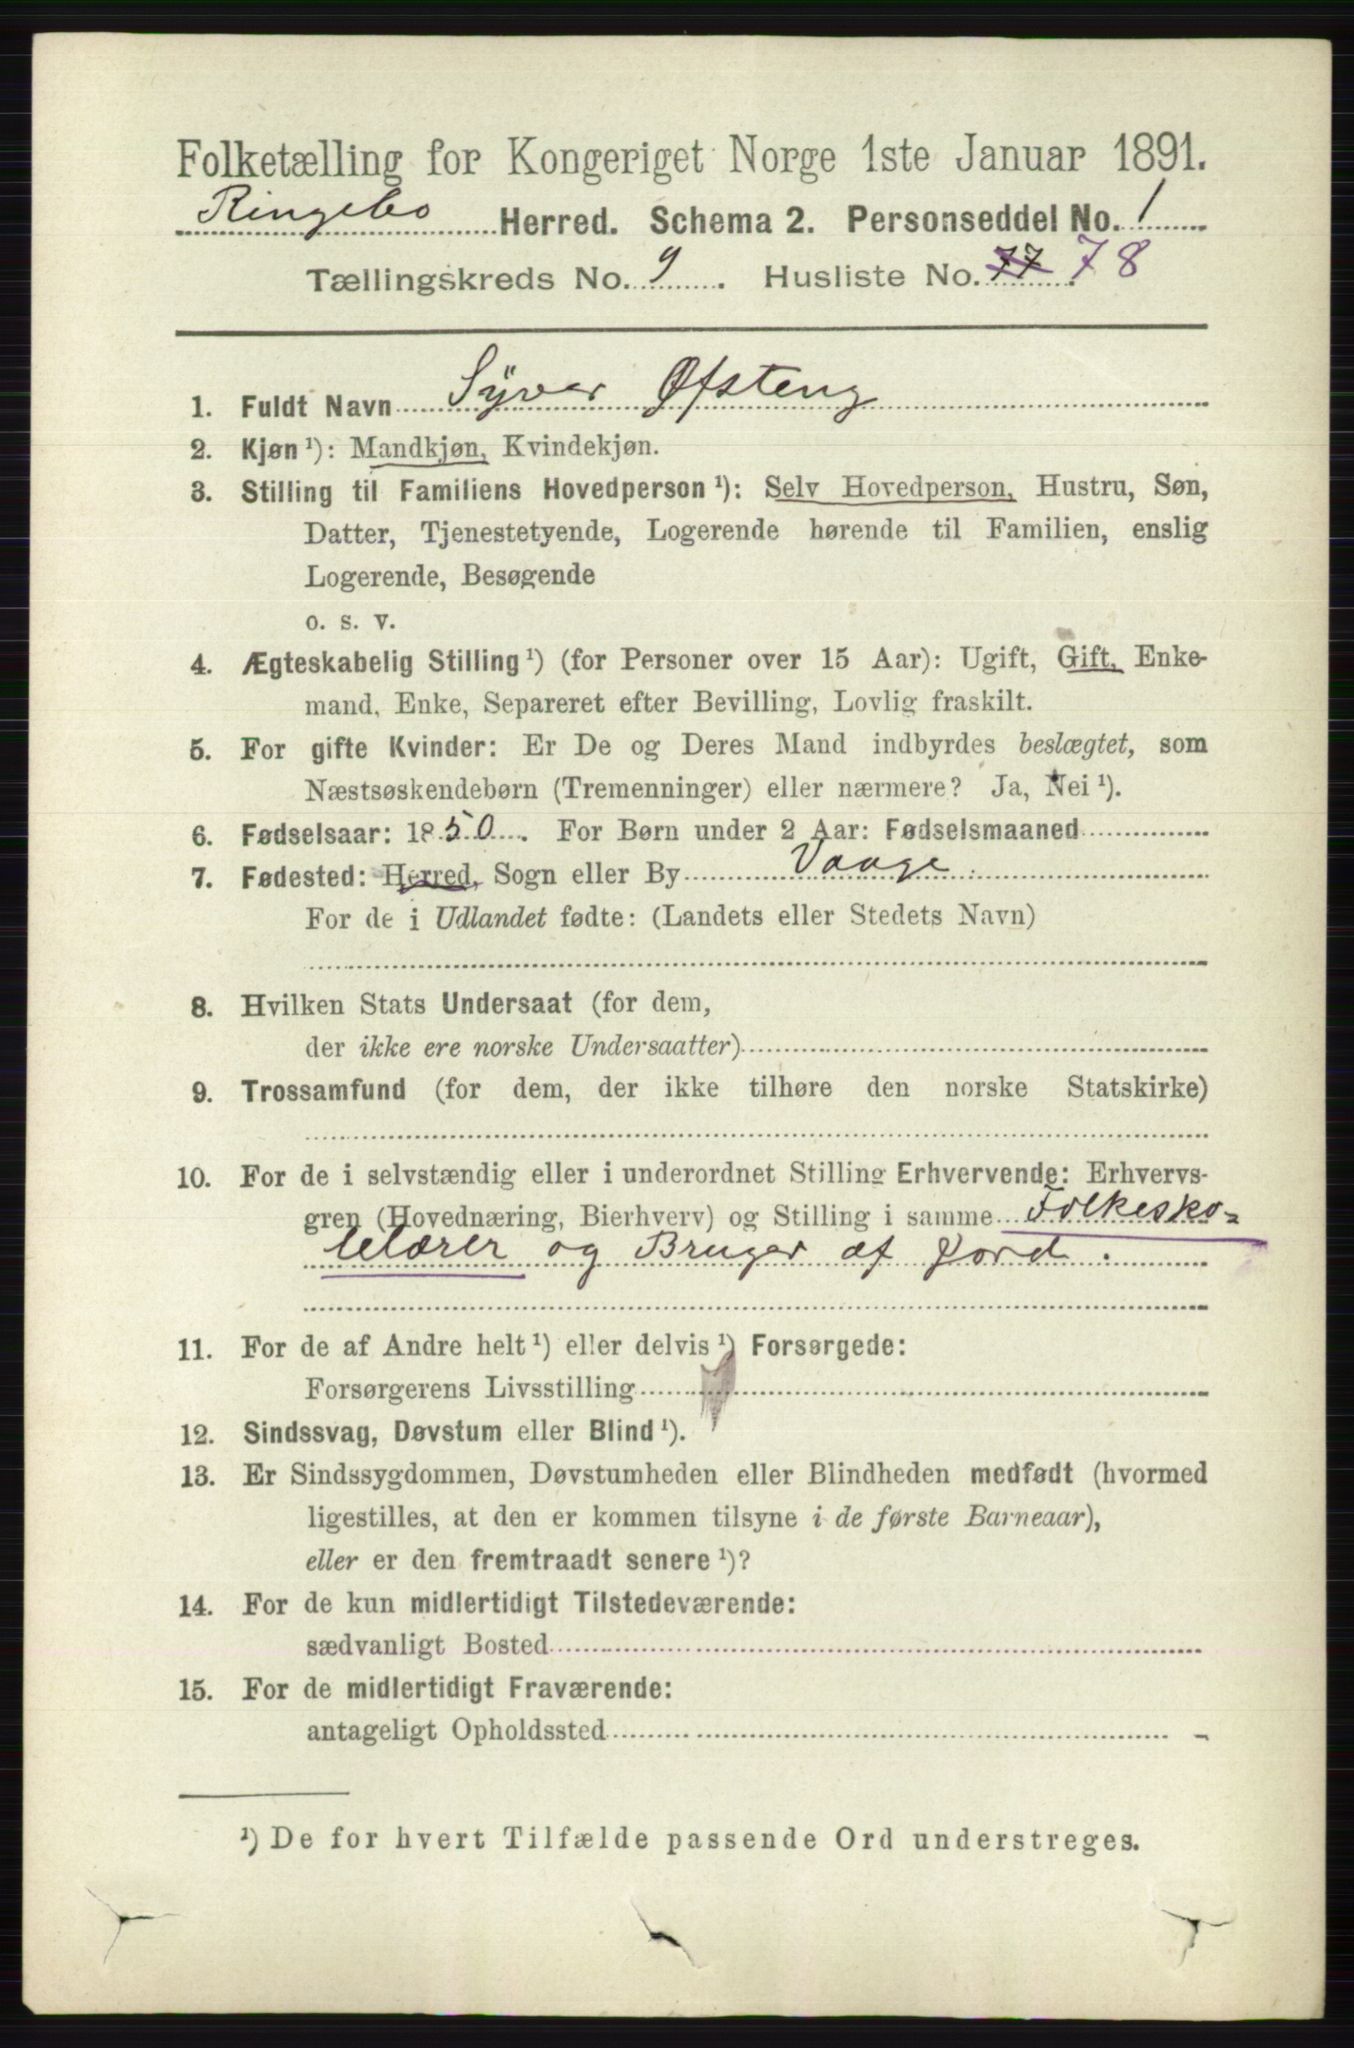 Folketælling for Kongeriget Norge 1ste Januar 1891.
Ringebo Herred. Schema 2. Personseddel No. 1
Tællingskreds No. 9. Husliste No. 77 78
1. Fuldt Navn Syver Øfsteng
2. Kjøn ¹): Mandkjøn, Kvindekjøn.
3. Stilling til Familiens Hovedperson ¹): Selv Hovedperson, Hustru, Søn,
Datter, Tjenestetyende, Logerende hørende til Familien, enslig
Logerende, Besøgende
o. s. v.
4. Ægteskabelig Stilling ¹) (for Personer over 15 Aar): Ugift, Gift, Enke-
mand, Enke, Separeret efter Bevilling, Lovlig fraskilt.
5. For gifte Kvinder: Er De og Deres Mand indbyrdes beslægtet, som
Næstsøskendebørn (Tremenninger) eller nærmere? Ja, Nei ¹).
6. Fødselsaar: 1850. For Børn under 2 Aar: Fødselsmaaned
7. Fødested: Herred, Sogn eller By Vaage.
For de i Udlandet fødte: (Landets eller Stedets Navn)
8. Hvilken Stats Undersaat (for dem,
der ikke ere norske Undersaatter)
9. Trossamfund (for dem, der ikke tilhøre den norske Statskirke)
10. For de i selvstændig eller i underordnet Stilling Erhvervende: Erhvervs-
gren (Hovednæring, Bierhverv) og Stilling i samme Folkesko-
lelærer og Bruger af Jord.
11. For de af Andre helt ¹) eller delvis ¹) Forsørgede:
Forsørgerens Livsstilling
12. Sindssvag, Døvstum eller Blind ¹).
13. Er Sindssygdommen, Døvstumheden eller Blindheden medfødt (hvormed
ligestilles, at den er kommen tilsyne i de første Barneaar),
eller er den fremtraadt senere ¹)?
14. For de kun midlertidigt Tilstedeværende:
sædvanligt Bosted
15. For de midlertidigt Fraværende:
antageligt Opholdssted
¹) De for hvert Tilfælde passende Ord understreges.